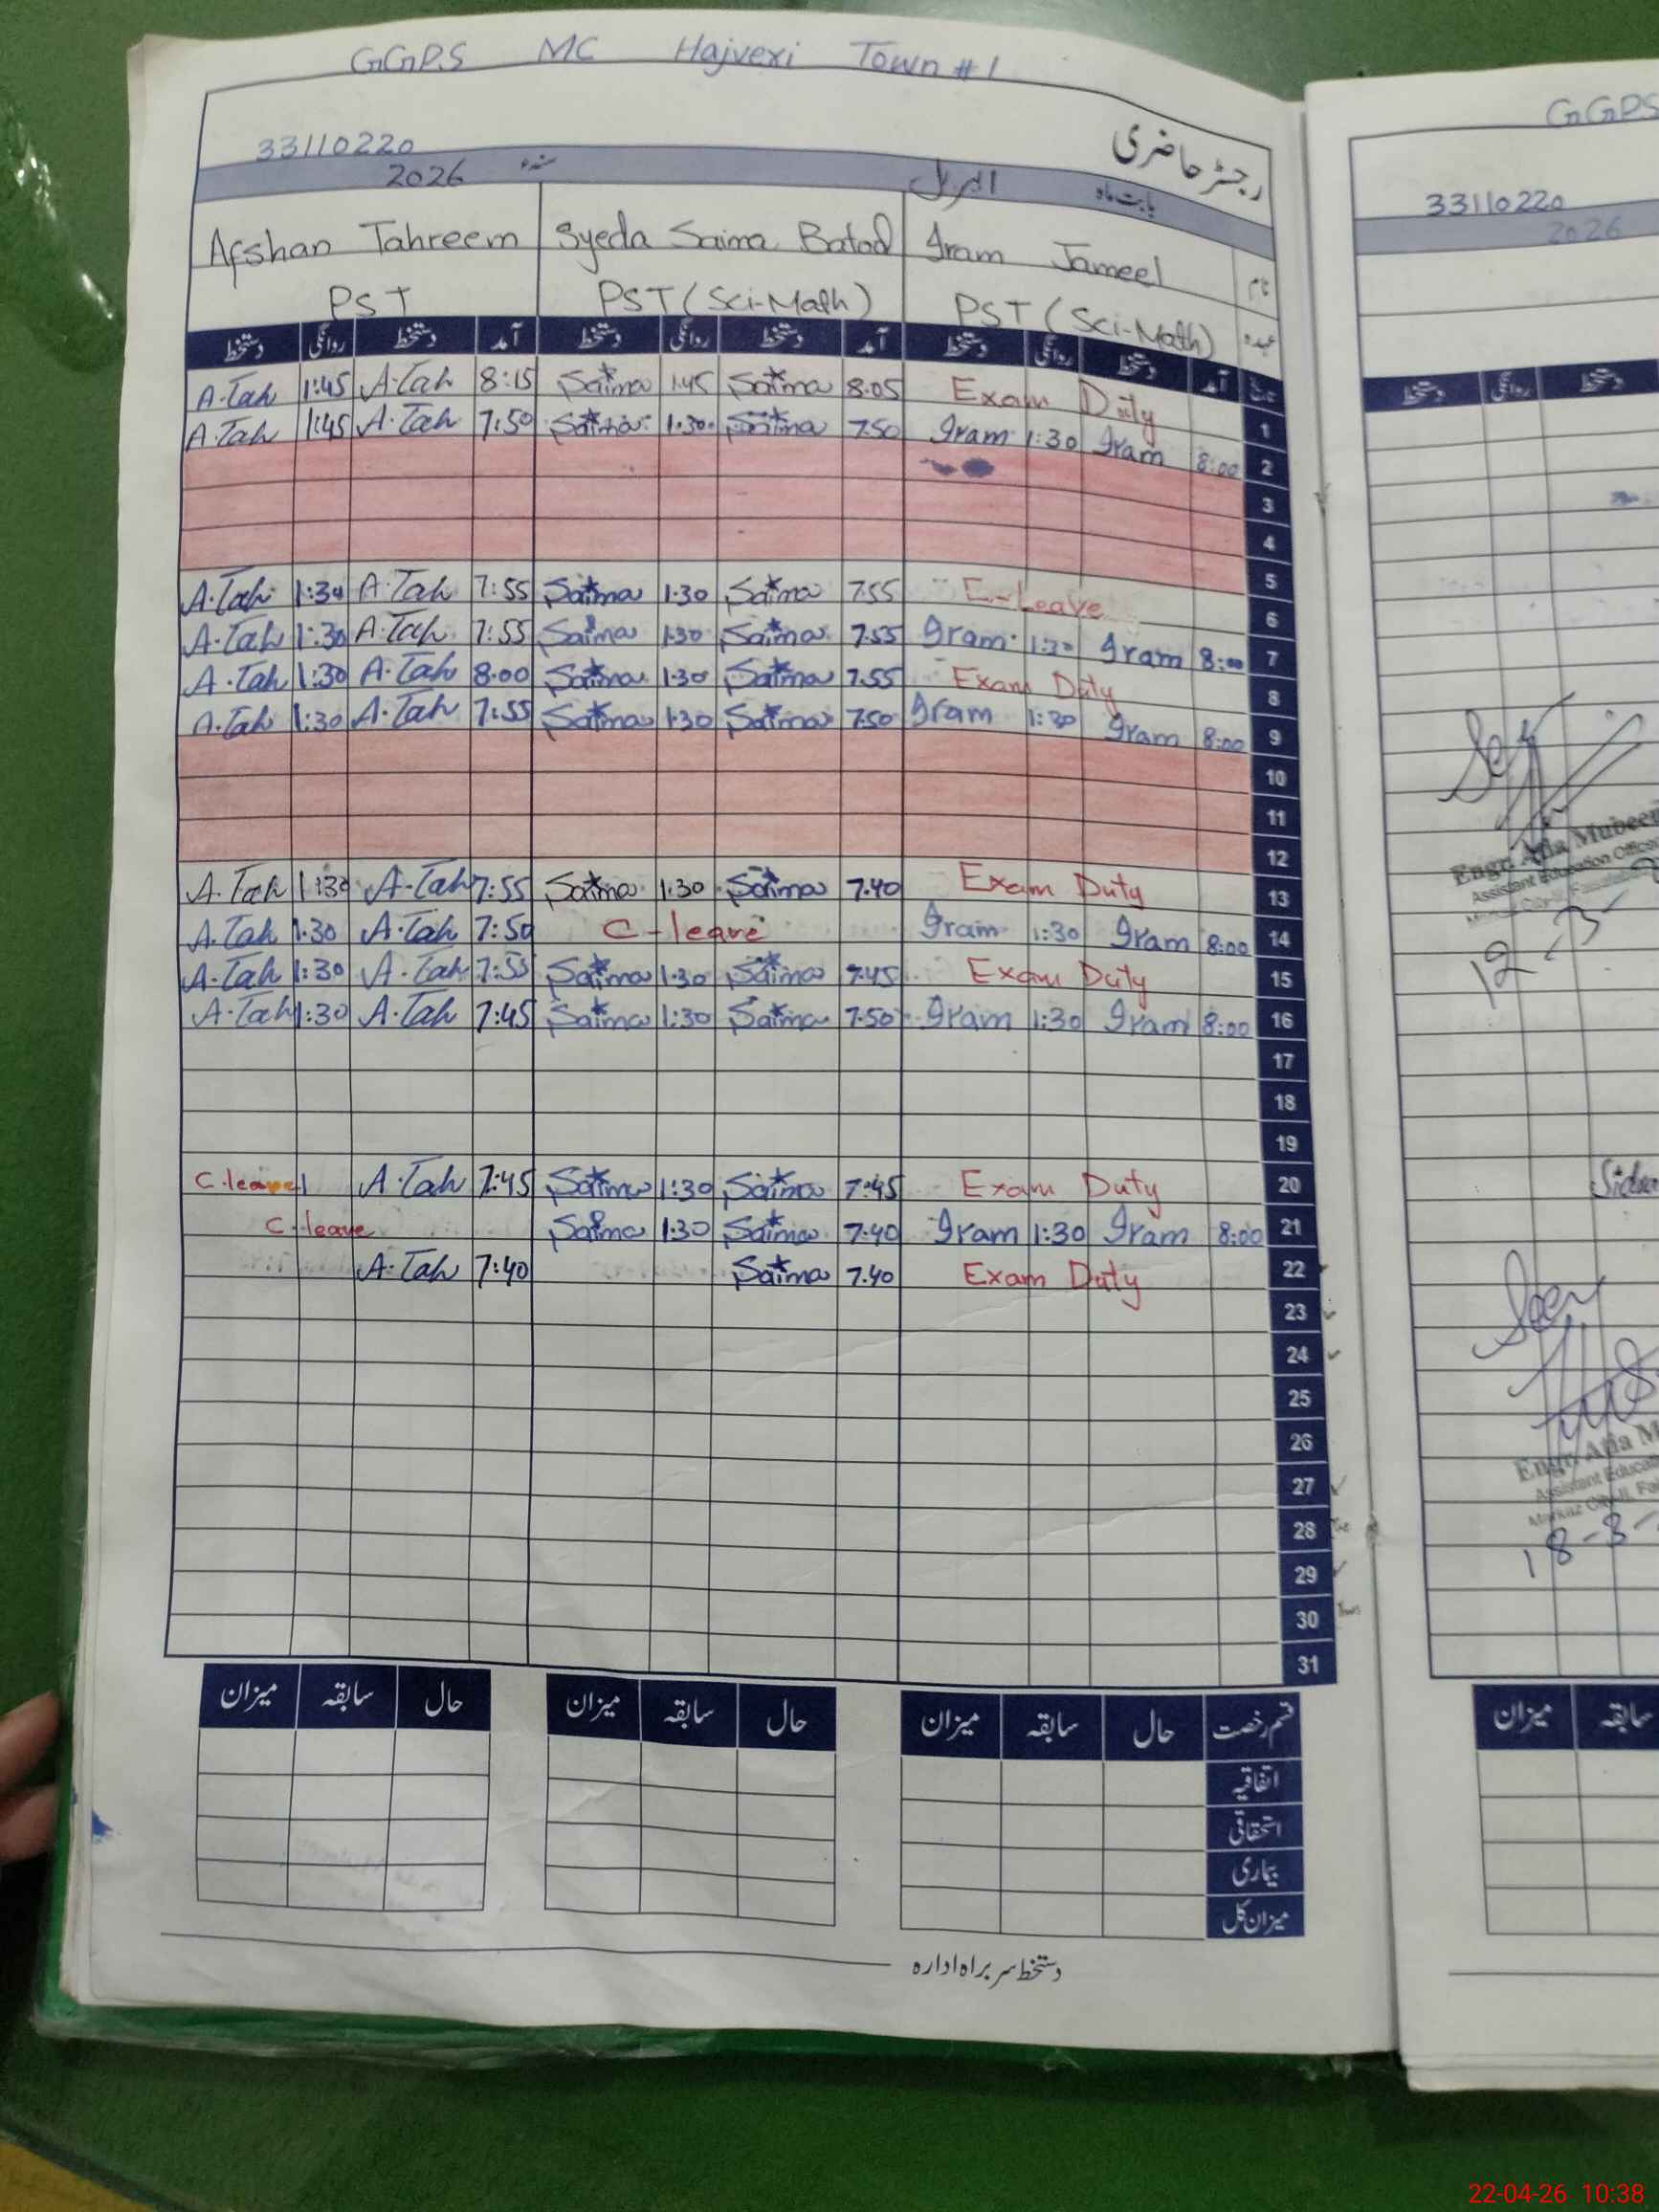 GGPS MC Hajveri Town #1
رجسٹر حاضری
33110220
بابت ماہ اپریل 2026 سنہء
نام Iram Jameel Syeda Saima Batool Afshan Tahreem
عہدہ PST (Sci-Math) PST (Sci-Math) PST
آمد دستخط روانگی دستخط آمد دستخط روانگی دستخط آمد دستخط روانگی دستخط
A.Tah 1:45 A.Tah 8:15 Saima 1:45 Saima 8:05 Exam Duty 1
A.Tah 1:45 A.Tah 7:50 Saima 1:30 Saima 7:50 Iram 1:30 Iram 8:00 2
3
4
5
A.Tah 1:30 A.Tah 7:55 Saima 1:30 Saima 7:55 E-Leave 6
A.Tah 1:30 A.Tah 7:55 Saima 1:30 Saima 7:55 Iram 1:30 Iram 8:00 7
A.Tah 1:30 A.Tah 8:00 Saima 1:30 Saima 7:55 Exam Duty 8
A.Tah 1:30 A.Tah 7:55 Saima 1:30 Saima 7:50 Iram 1:30 Iram 8:00 9
10
11
12
A.Tah 1:30 A.Tah 7:55 Saima 1:30 Saima 7.40 Exam Duty 13
A.Tah 1.30 A.Tah 7:50 C-leave Iram 1:30 Iram 8:00 14
A.Tah 1:30 A.Tah 7:55 Saima 1:30 Saima 7:45 Exam Duty 15
A.Tah 1:30 A.Tah 7:45 Saima 1:30 Saima 7.50 Iram 1:30 Iram 8:00 16
17
18
19
C.leave A.Tah 7:45 Saima 1:30 Saima 7:45 Exam Duty 20
C-leave Saima 1:30 Saima 7:40 Iram 1:30 Iram 8:00 21
A.Tah 7:40 Saima 7.40 Exam Duty 22
23
24
25
26
27
28
29
30
31
قسم رخصت حال سابقہ میزان حال سابقہ میزان حال سابقہ میزان
اتفاقیہ
استحقاقی
بیماری
میزان کل
دستخط سربراہ ادارہ
GGPS
33110220
2026
دستخط روانگی دستخط
Engr. Afia Mubeen
Assistant Education Officer
Engr. Afia M
Assistant Educat
Markaz City-II, Fai
18-3-
سابقہ میزان
22-04-26 10:38